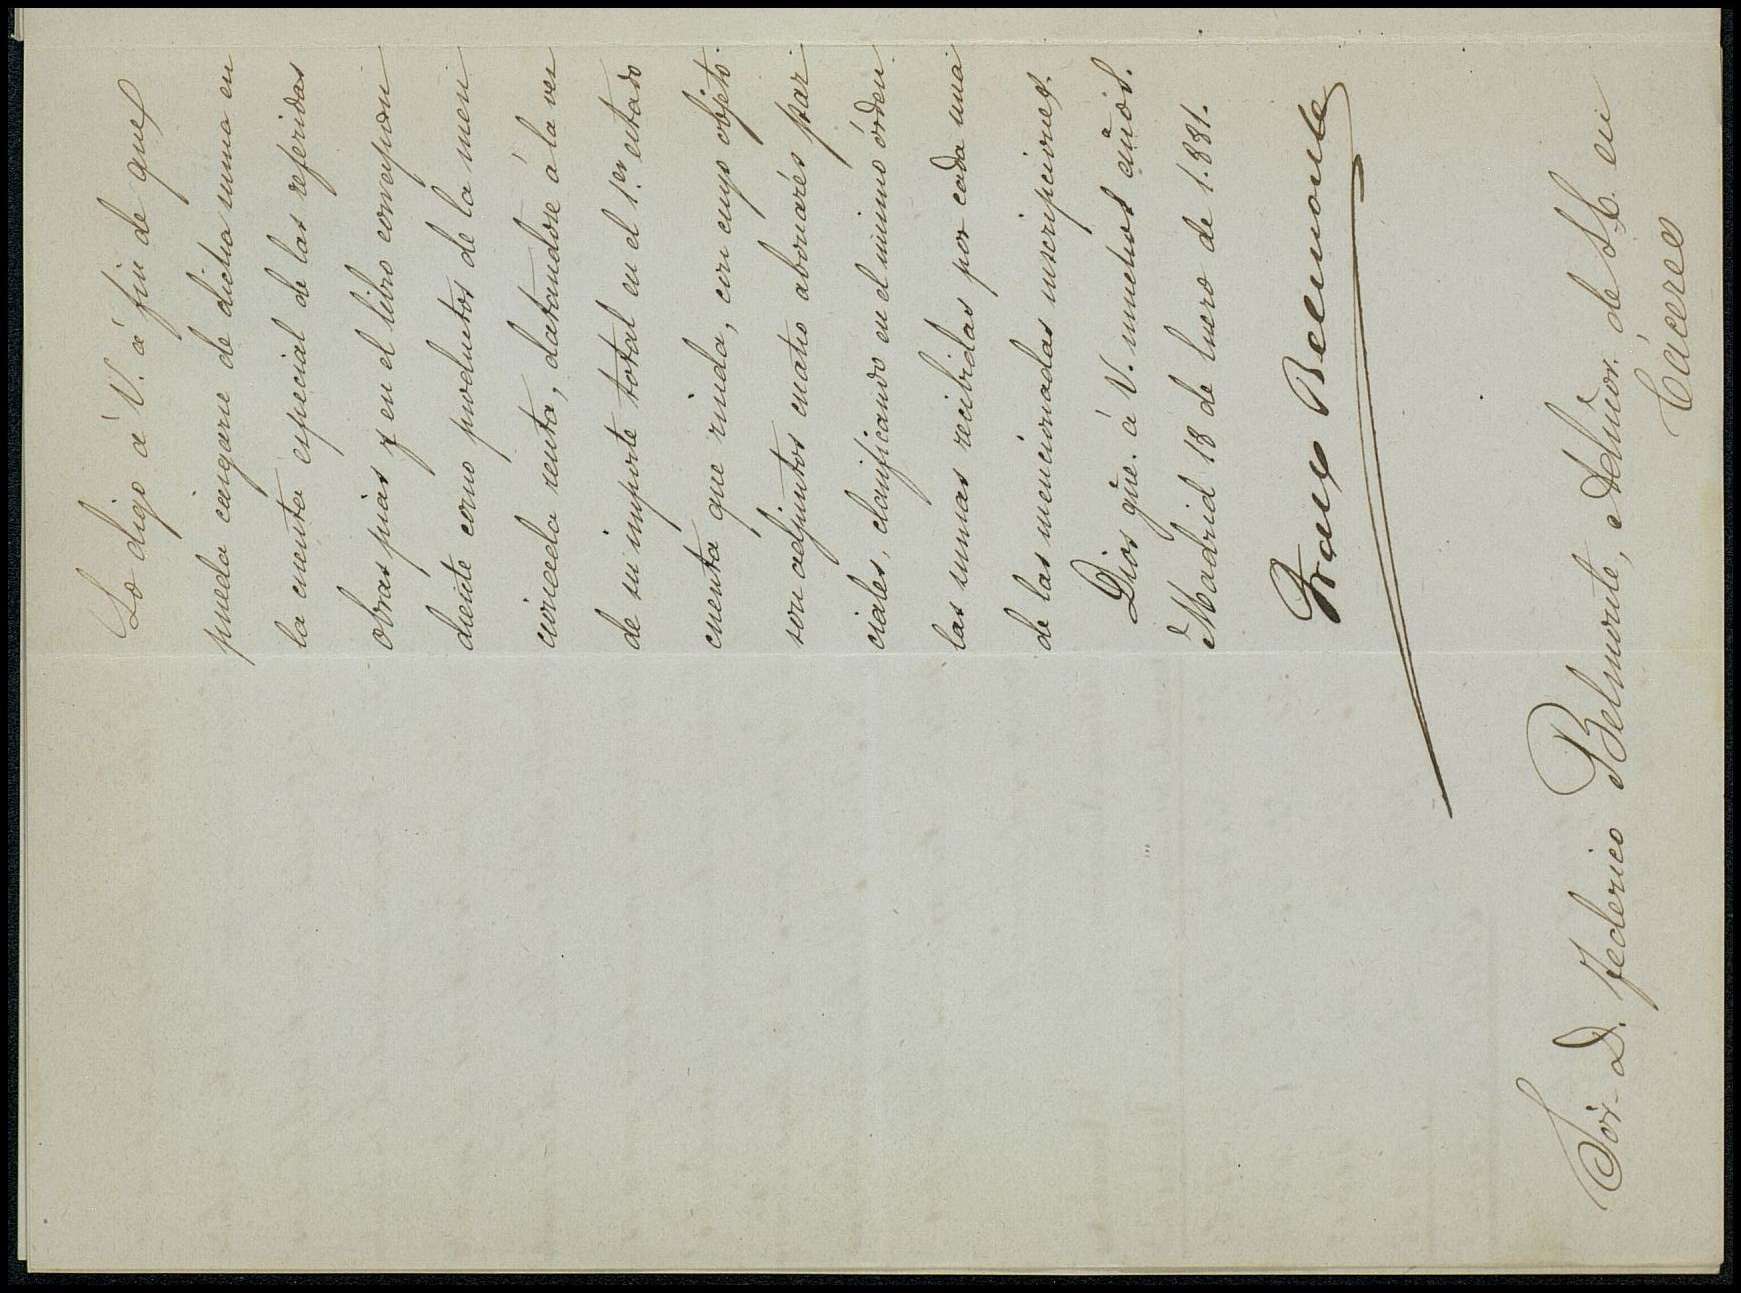 Lo digo á V. á fin de que
pueda cargarse de dicha suma en
la cuenta especial de las referidas
obras pias y en el libro correspon
diente como productos de la men
cionada renta, datandose á la vez
de su importe total en el 1.er estado
cuenta que rinda, con cuyo objeto
son adjuntos cuatro abonarés par
ciales, clasificando en el mismo órden
las sumas recibidas por cada una
de las mencionadas inscripciones.
Dios gue. á V. muchos años.
Madrid 18 de Enero de 1.881.
Franco Belmonte
Sor. D. Federico Belmonte, Admor. de SE. en
Cáceres